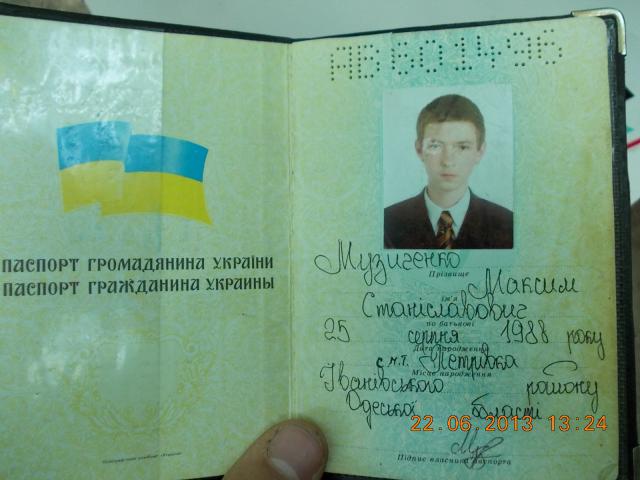 ПАСПОРТ ГРОМАДЯНИНА УКРАЇНИ
ПАСПОРТ ГРАЖДАНИНА УКРАИНЫ
АВ 601496
Музиченко
Прізвище
Максим
Ім'я
Станіславович
по батькові
25 серпня 1988 року
Дата народження
с.м.т. Петрівка
Місце народження
Іванівського району
Одеської області
22.06.2013 13:24
Підпис власника паспорта